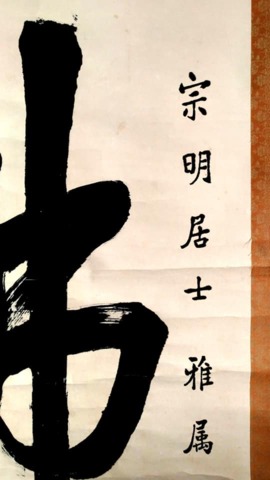 宗明居士雅属